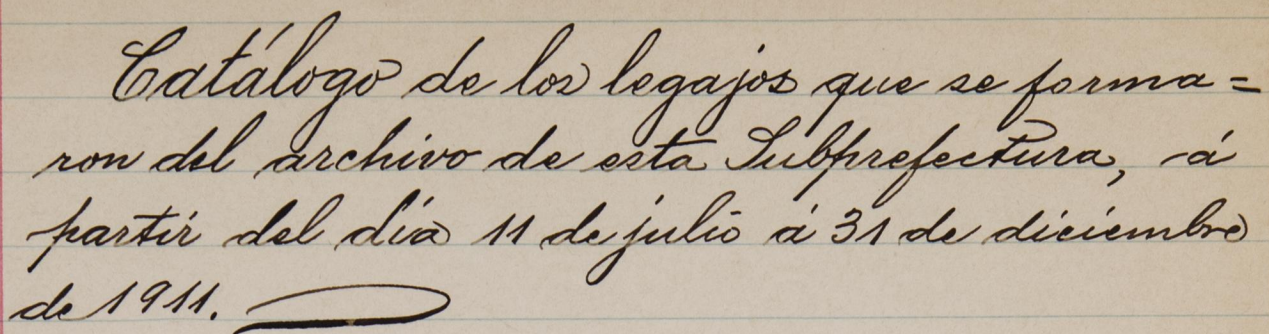 Catálogo de los legajos que se forma=
ron del archivo de esta Subprefectura, á
partir del día 11 de julio á 31 de diciembre
de 1911.